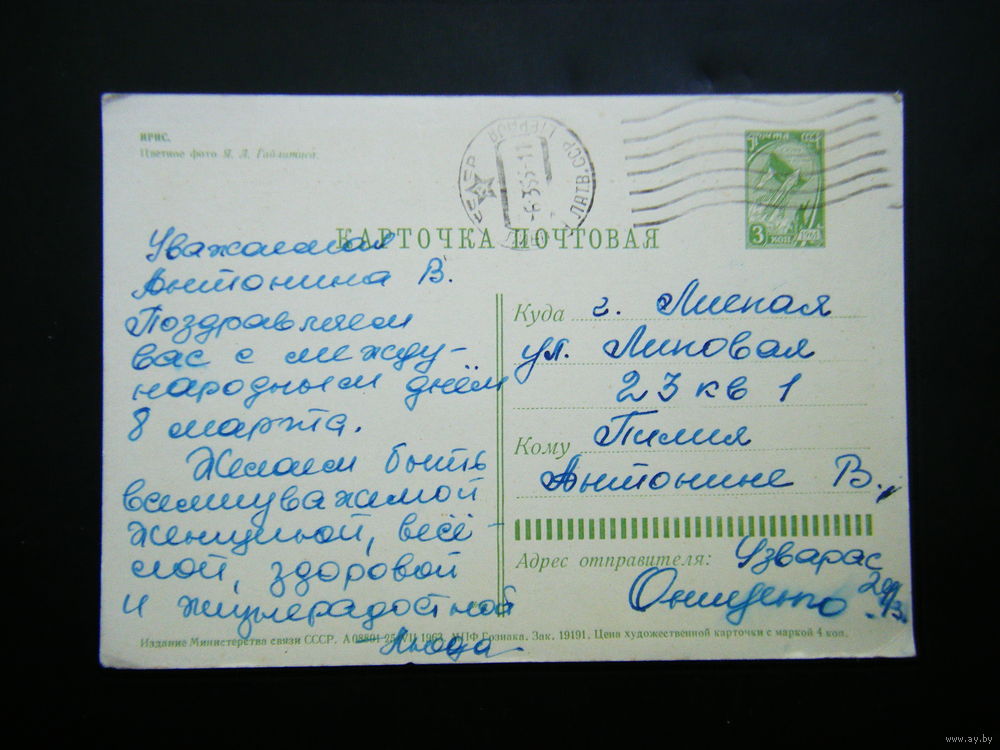 ИРИС.
Цветное фото Я. Л.
ЛАТВ. ССР
ПОЧТА СССР
3 КОП 1961
КАРТОЧКА ПОЧТОВАЯ
Уважаемая
Антонина В.
Поздравляем
вас с между-
народным днём
8 марта.
Желаем быть
всеми уважаемой
женщиной, весё-
лой, здоровой
и жизнерадостной
Куда г. Лиепая
ул. Липовая
23 кв 1
Кому Пилия
Антонине В.
Адрес отправителя: Узварас
Онищенко
Издание Министерства связи СССР. А 08801 25/VII 1963. МПФ Гознака. Зак. 19191. Цена художественной карточки с маркой 4 коп.
www.ay.by